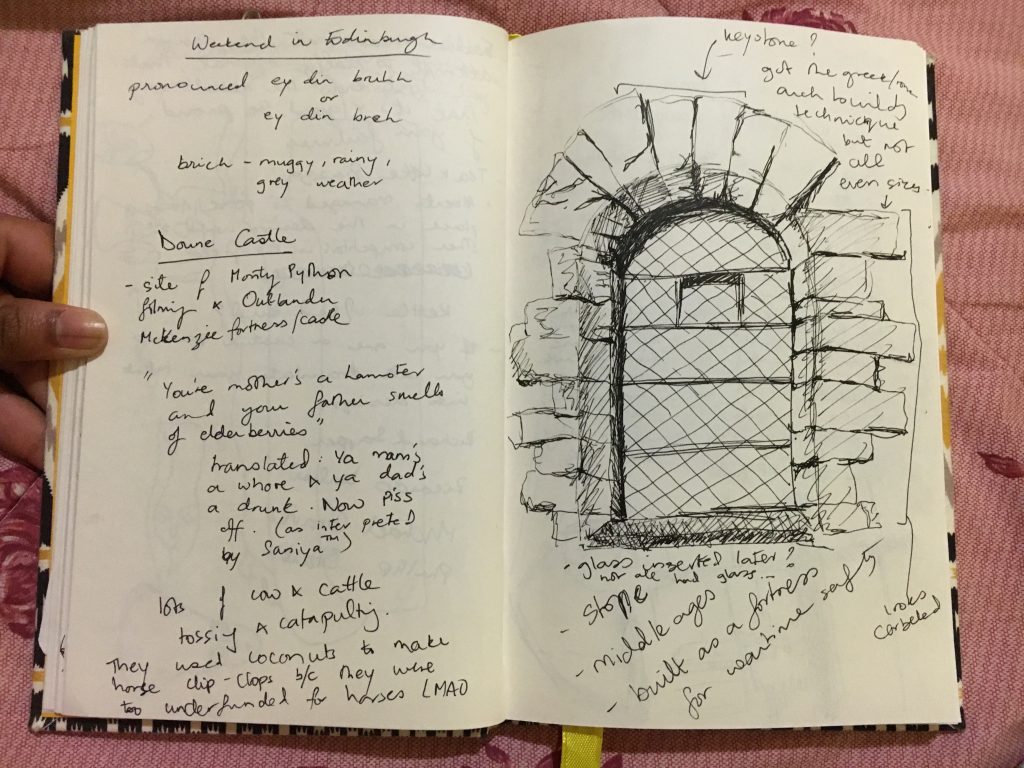 Weekend in Edinburgh
pronounced ey din bruhh
or
ey din breh
brich - muggy, rainy,
grey weather
Doune Castle
- site of Monty Python
filming & Outlander
McKenzie fortress/castle
"You're mother's a hamster
and your father smells
of elderberries"
translated: Ya mam's
a whore & ya dad's
a drunk. Now piss
off. (as interpreted
by Saniya™)
lots of cow & cattle
tossing & catapulting.
They used coconuts to make
horse clip-clops b/c they were
too underfunded for horses LMAO
keystone?
got the greek/
arch building
technique
but not
all
even sizes.
- glass inserted later?
not all had glass...?
- stone
- middle ages
- built as a fortress
for wartime safety
looks
corbeled